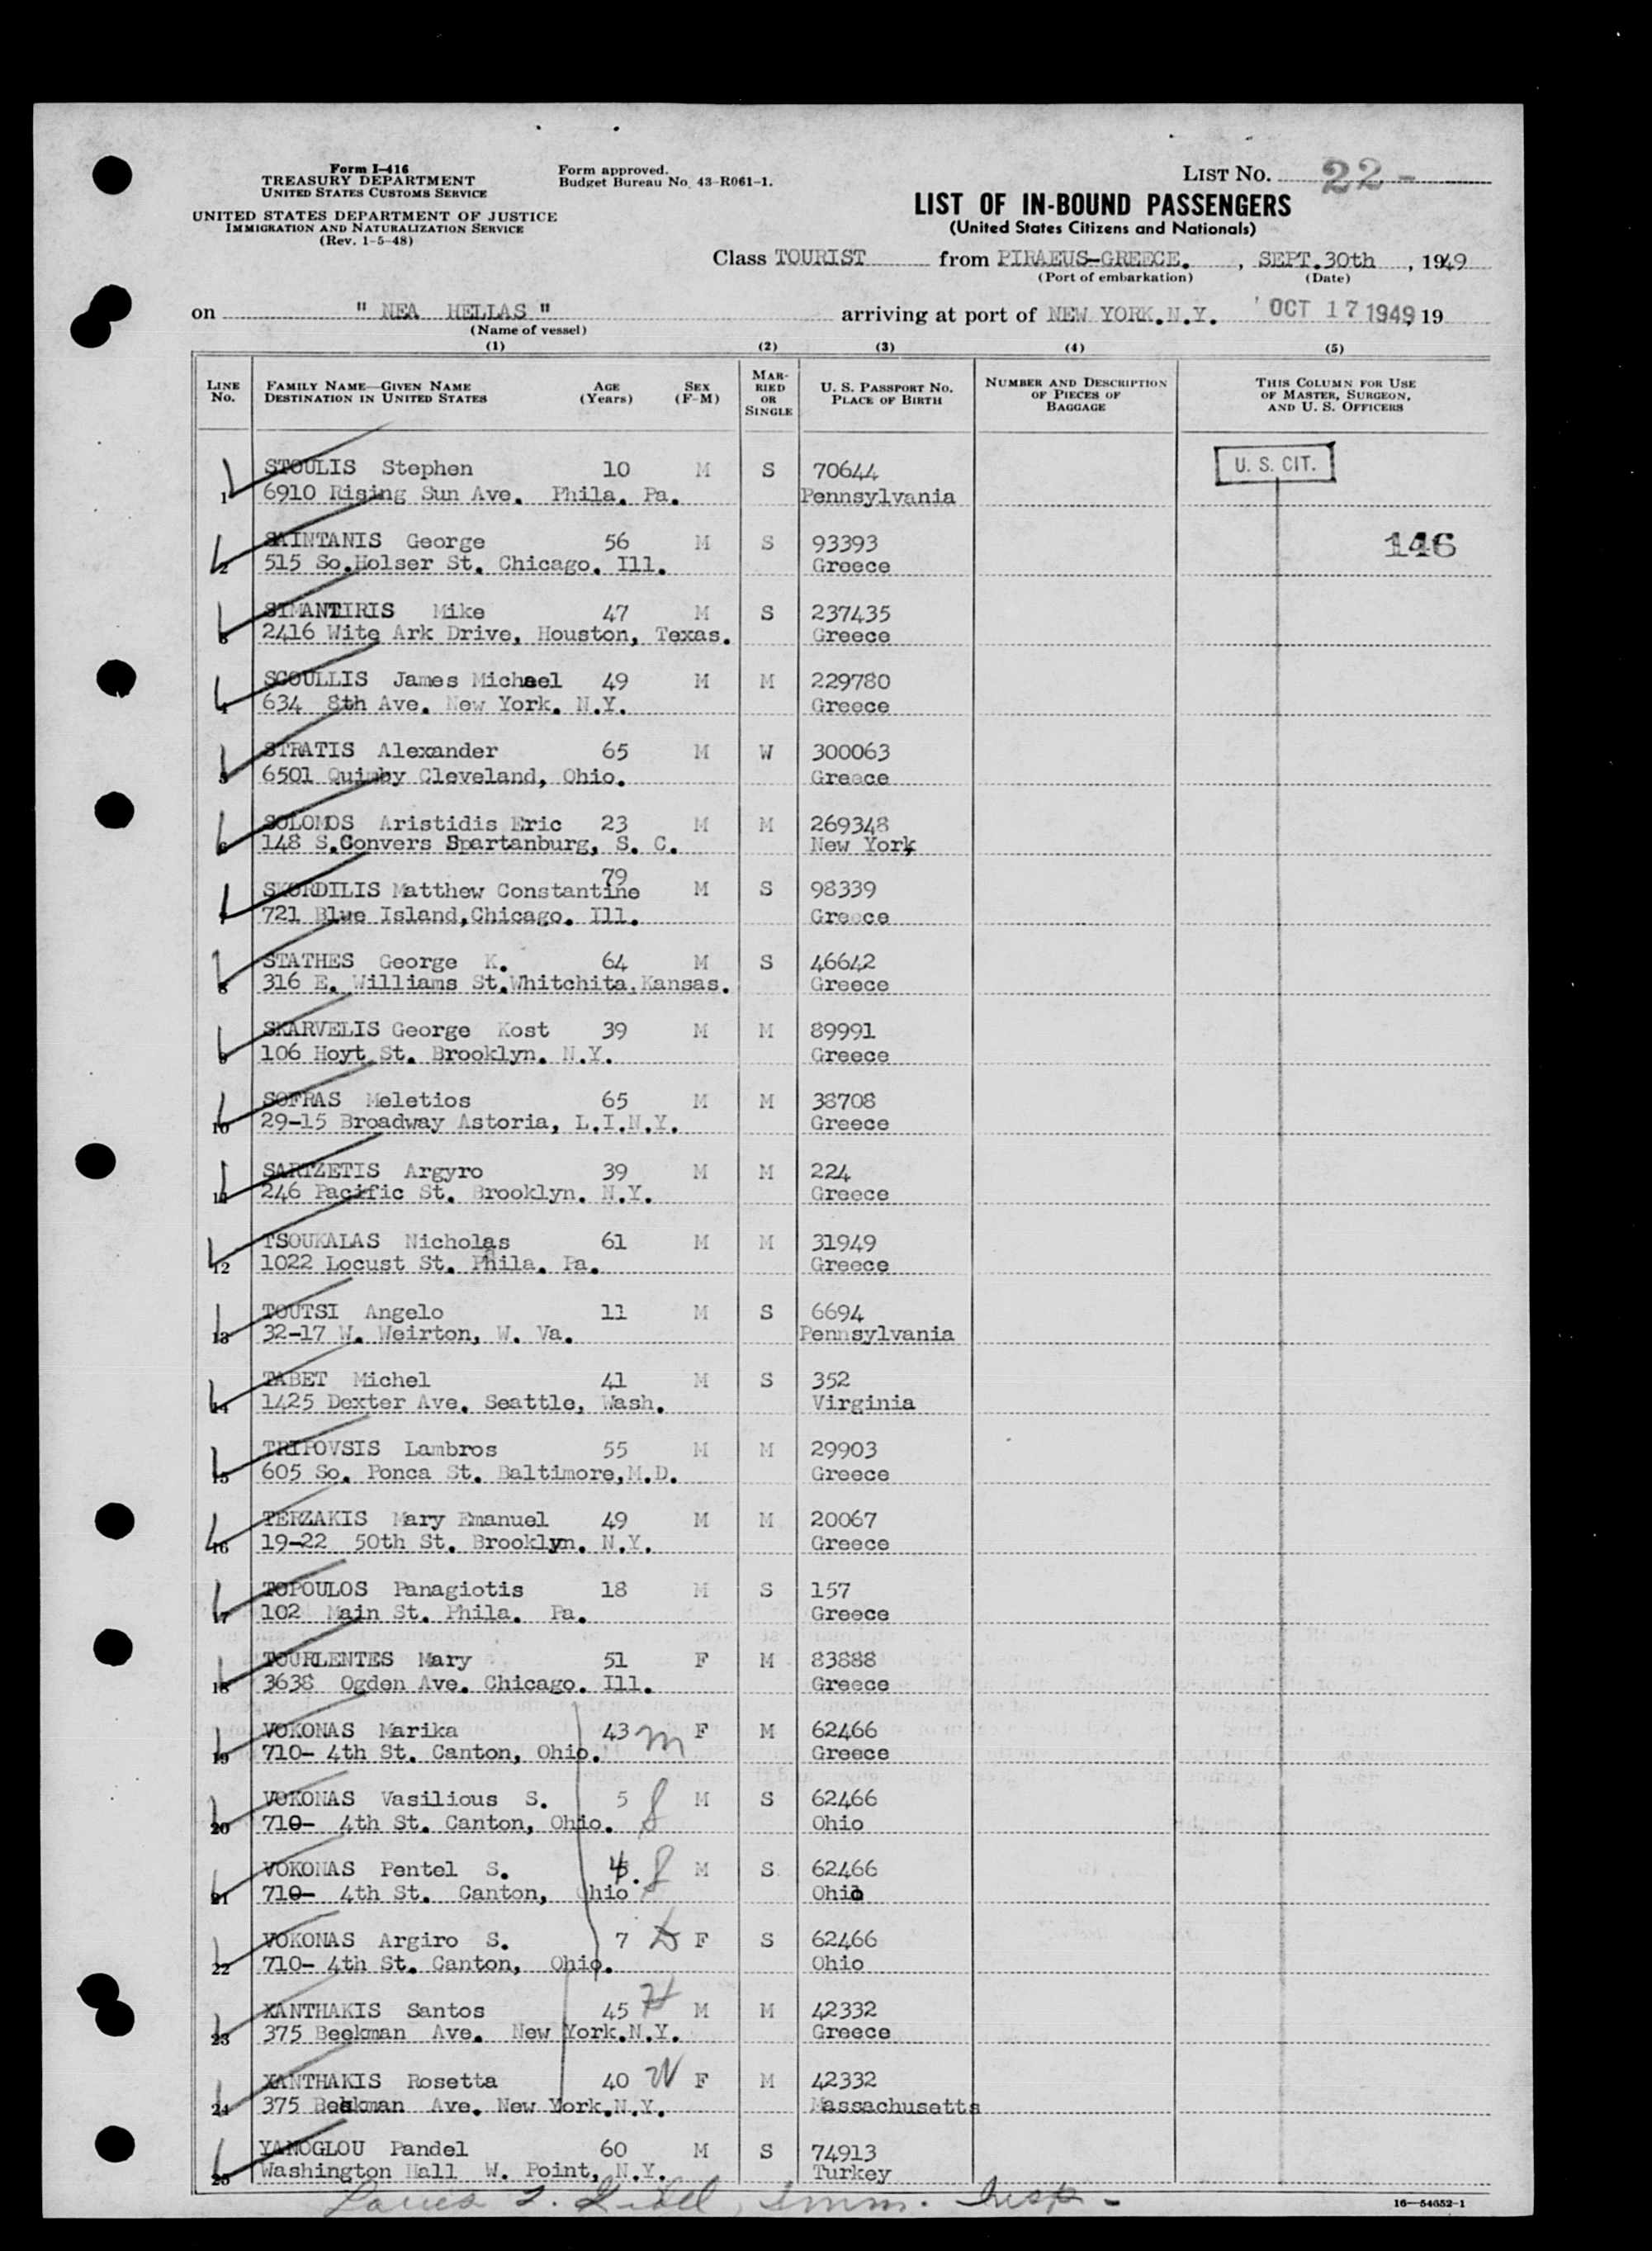 Form I-416
TREASURY DEPARTMENT
UNITED STATES CUSTOMS SERVICE
UNITED STATES DEPARTMENT OF JUSTICE
IMMIGRATION AND NATURALIZATION SERVICE
(Rev. 1-5-48)
Form approved.
Budget Bureau No. 43-R061-1.
LIST NO. 22-
LIST OF IN-BOUND PASSENGERS
(United States Citizens and Nationals)
Class TOURIST from PIRAEUS-GREECE. , SEPT.30th , 1949
(Port of embarkation) (Date)
on " NEA HELLAS " arriving at port of NEW YORK.N.Y. OCT 17 1949 19
(Name of vessel)
(1) (2) (3) (4) (5)
LINE NO. FAMILY NAME—GIVEN NAME DESTINATION IN UNITED STATES AGE (Years) SEX (F-M) MARRIED OR SINGLE U. S. PASSPORT NO. PLACE OF BIRTH NUMBER AND DESCRIPTION OF PIECES OF BAGGAGE THIS COLUMN FOR USE OF MASTER, SURGEON, AND U. S. OFFICERS
STOULIS Stephen 10 M S 70644 U. S. CIT.
1 6910 Rising Sun Ave. Phila. Pa. Pennsylvania
SAINTANIS George 56 M S 93393 146
2 515 So.Holser St. Chicago. Ill. Greece
SIMANTIRIS Mike 47 M S 237435
3 2416 Wite Ark Drive, Houston, Texas. Greece
SCOULLIS James Michael 49 M M 229780
4 634 8th Ave. New York. N.Y. Greece
STRATIS Alexander 65 M W 300063
5 6501 Quimby Cleveland, Ohio. Greece
SOLOMOS Aristidis Eric 23 M M 269348
6 148 S.Convers Spartanburg, S. C. New York
79
SKORDILIS Matthew Constantine M S 98339
7 721 Blue Island,Chicago. Ill. Greece
STATHES George K. 64 M S 46642
8 316 E. Williams St.Whitchita.Kansas. Greece
SKARVELIS George Kost 39 M M 89991
9 106 Hoyt St. Brooklyn. N.Y. Greece
SOFRAS Meletios 65 M M 38708
10 29-15 Broadway Astoria, L.I.N.Y. Greece
SARTZETIS Argyro 39 M M 224
11 246 Pacific St. Brooklyn. N.Y. Greece
TSOUKALAS Nicholas 61 M M 31949
12 1022 Locust St. Phila. Pa. Greece
TOUTSI Angelo 11 M S 6694
13 32-17 W. Weirton, W. Va. Pennsylvania
TABET Michel 41 M S 352
14 1425 Dexter Ave. Seattle, Wash. Virginia
TRIPOVSIS Lambros 55 M M 29903
15 605 So. Ponca St. Baltimore,M.D. Greece
TERZAKIS Mary Emanuel 49 M M 20067
16 19-22 50th St. Brooklyn. N.Y. Greece
TOPOULOS Panagiotis 18 M S 157
17 102 Main St. Phila. Pa. Greece
TOURLENTES Mary 51 F M 83888
18 3638 Ogden Ave. Chicago. Ill. Greece
VOKONAS Marika 43 m F M 62466
19 710- 4th St. Canton, Ohio. Greece
VOKONAS Vasilious S. 5 S M S 62466
20 710- 4th St. Canton, Ohio. Ohio
VOKONAS Pentel S. 4. S M S 62466
21 710- 4th St. Canton, Ohio Ohio
VOKONAS Argiro S. 7 D F S 62466
22 710- 4th St. Canton, Ohio. Ohio
XANTHAKIS Santos 45 H M M 42332
23 375 Beekman Ave. New York.N.Y. Greece
XANTHAKIS Rosetta 40 W F M 42332
24 375 Beekman Ave. New York.N.Y. Massachusetts
YANOGLOU Pandel 60 M S 74913
25 Washington Hall W. Point, N.Y. Turkey
Imm. Insp-
16—54652-1